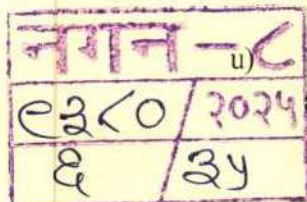 नगन - ८
u)
९३८० / २०२५
६ / ३५